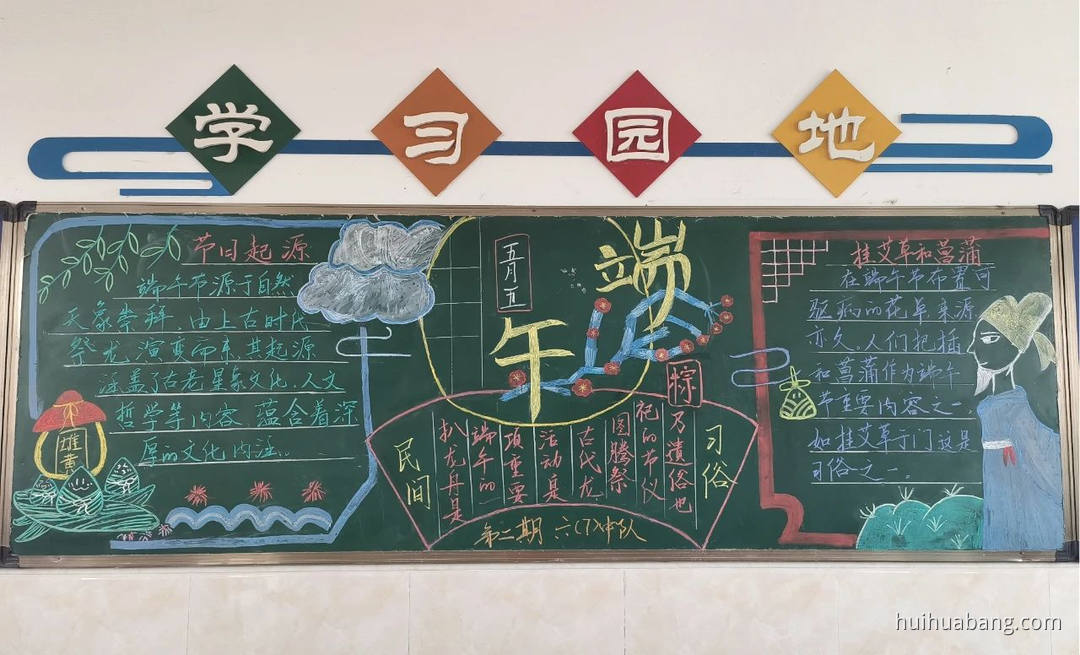 学习园地
节日起源
端午节源于自然
天象崇拜,由上古时代
祭龙演变而来,其起源
涵盖了古老星象文化,人文
哲学等内容,蕴含着深
厚的文化内涵。
雄黄
五月五
端午
粽
民间
习俗
扒龙舟是
端午的
项重要
活动是
古代龙
图腾祭
祀的节仪
乃遗俗也
第二期 六(7)中队
挂艾草和菖蒲
在端午节布置可
驱病的花草,来源
亦久。人们把插
和菖蒲作为端午
节重要内容之一
如挂艾草于门这是
习俗之一。
huihuabang.com